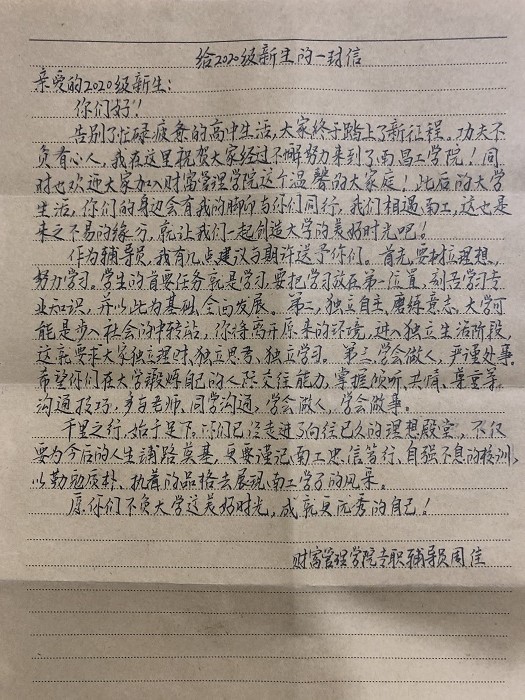 给2020级新生的一封信
亲爱的2020级新生：
你们好！
告别了忙碌疲惫的高中生活，大家终于踏上了新征程。功夫不
负有心人，我在这里祝贺大家经过不懈努力来到了南昌工学院！同
时也欢迎大家加入财富管理学院这个温馨的大家庭！此后的大学
生活，你们的身边会有我的脚印与你们同行，我们相遇南工，这也是
来之不易的缘分，就让我们一起创造大学的美好时光吧！
作为辅导员，我有几点建议与期许送予你们。首先，要树立理想，
努力学习。学生的首要任务就是学习，要把学习放在第一位置，刻苦学习专
业知识，并以此为基础，全面发展。第二，独立自主、磨练意志，大学可
能是步入社会的中转站，你将离开原来的环境，进入独立生活阶段，
这就要求大家独立理财、独立思考、独立学习。第三，学会做人，严谨处事。
希望你们在大学锻炼自己的人际交往能力，掌握倾听、共情、尊重等
沟通技巧，多与老师、同学沟通，学会做人，学会做事。
千里之行，始于足下。你们已经走进了向往已久的理想殿堂，不仅
要为今后的人生铺路奠基，更要谨记南工忠信笃行、自强不息的校训，
以勤勉质朴、执着的品格去展现南工学子的风采。
愿你们不负大学这美好时光，成就更优秀的自己！
财富管理学院专职辅导员周佳